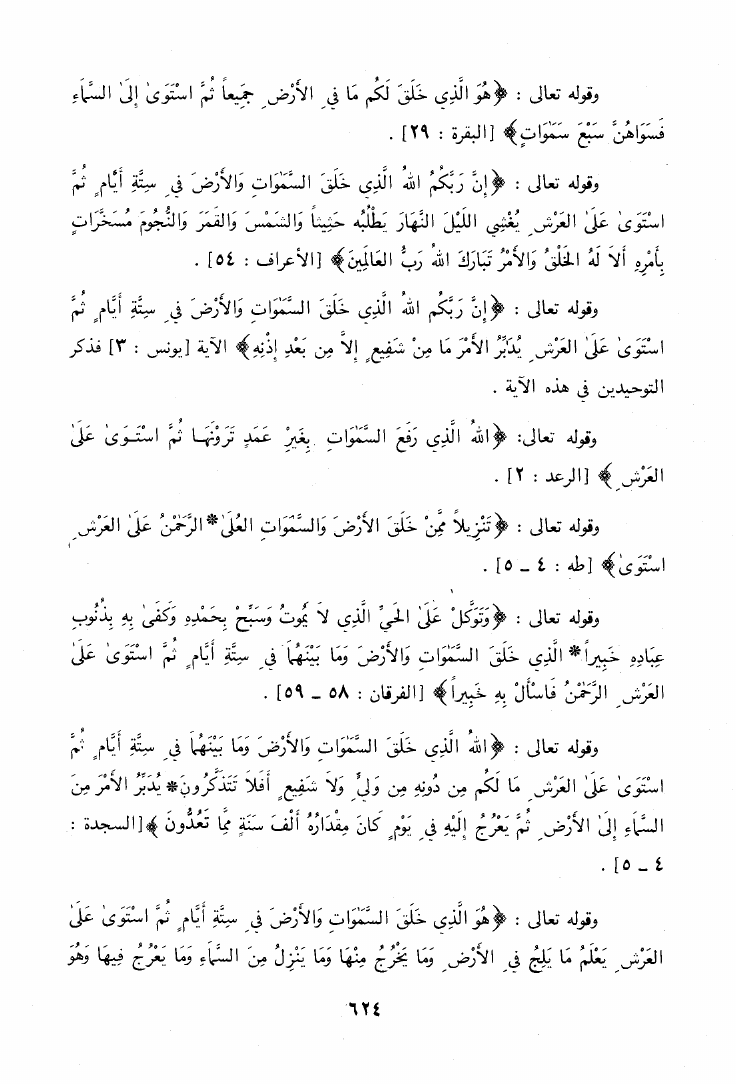 وقوله تعالى : ﴿هُوَ الَّذِي خَلَقَ لَكُم مَا فِي الأَرْضِ جَمِيعاً ثُمَّ اسْتَوَىٰ إِلَىٰ السَّمَاءِ
فَسَوَاهُنَّ سَبْعَ سَمٰوَاتٍ﴾ [البقرة : ٢٩] .
وقوله تعالى : ﴿إِنَّ رَبَّكُمُ اللهُ الَّذِي خَلَقَ السَّمٰوَاتِ وَالأَرْضَ فِي سِتَّةِ أَيَّامٍ ثُمَّ
اسْتَوَىٰ عَلَىٰ العَرْشِ يُغْشِي اللَّيْلَ النَّهَارَ يَطْلُبُه حَثِيثاً وَالشَمْسَ وَالقَمَرَ وَالنُّجُومَ مُسَخَّرَاتٍ
بِأَمْرِهِ أَلاَ لَهُ الخَلْقُ وَالأَمْرُ تَبَارَكَ اللهُ رَبُّ العَالَمِينَ﴾ [الأعراف : ٥٤] .
وقوله تعالى : ﴿إِنَّ رَبَّكُم اللهُ الَّذِي خَلَقَ السَّمٰوَاتِ وَالأَرْضَ فِي سِتَّةِ أَيَّامٍ ثُمَّ
اسْتَوَىٰ عَلَىٰ العَرْشِ يُدَبِّرُ الأَمْرَ مَا مِنْ شَفِيعٍ إِلاَّ مِن بَعْدِ إِذْنِهِ﴾ الآية [يونس : ٣] فذكر
التوحيدين في هذه الآية .
وقوله تعالى: ﴿اللهُ الَّذِي رَفَعَ السَّمٰوَاتِ بِغَيْرِ عَمَدٍ تَرَوْنَهَا ثُمَّ اسْتَوىٰ عَلَىٰ
العَرْشِ﴾ [الرعد : ٢] .
وقوله تعالى : ﴿تَنْزِيلاً مِّمَّنْ خَلَقَ الأَرْضَ وَالسَّمٰوَاتِ العُلَىٰ*الرَّحْمٰنُ عَلَىٰ العَرْشِ
اسْتَوَىٰ﴾ [طه : ٤ ـ ٥] .
وقوله تعالى : ﴿وَتَوَكَّلْ عَلَىٰ الحَيِّ الَّذِي لاَ يَمُوتُ وَسَبِّحْ بِحَمْدِهِ وَكَفَىٰ بِهِ بِذُنُوبِ
عِبَادِهِ خَبِيراً*الَّذِي خَلَقَ السَّمٰوَاتِ وَالأَرْضَ وَمَا بَيْنَهُمَا فِي سِتَّةِ أَيَّامٍ ثُمَّ اسْتَوَىٰ عَلَىٰ
العَرْشِ الرَّحْمٰنُ فَاسْأَلْ بِهِ خَبِيراً﴾ [الفرقان : ٥٨ ـ ٥٩] .
وقوله تعالى : ﴿اللهُ الَّذِي خَلَقَ السَّمٰوَاتِ وَالأَرْضَ وَمَا بَيْنَهُمَا فِي سِتَّةِ أَيَّامٍ ثُمَّ
اسْتَوَىٰ عَلَىٰ العَرْشِ مَا لَكُم مِن دُونِهِ مِن وَلِيٍّ وَلاَ شَفِيعٍ أَفَلاَ تَتَذَكَّرُونَ*يُدَبِّرُ الأَمْرَ مِنَ
السَّمَاءِ إِلَىٰ الأَرْضِ ثُمَّ يَعْرُجُ إِلَيْهِ فِي يَوْمٍ كَانَ مِقْدَارُهُ أَلْفَ سَنَةٍ مِمَّا تَعُدُّونَ﴾ [السجدة :
٤ ـ ٥] .
وقوله تعالى : ﴿هُوَ الَّذِي خَلَقَ السَمٰوَاتِ وَالأَرْضَ فِي سِتَّةِ أَيَّامٍ ثُمَّ اسْتَوَىٰ عَلَىٰ
العَرْشِ يَعْلَمُ مَا يَلِجُ فِي الأَرْضِ وَمَا يَخْرُجُ مِنْهَا وَمَا يَنْزِلُ مِنَ السَّمَاءِ وَمَا يَعْرُجُ فِيهَا وَهُوَ
٦٢٤